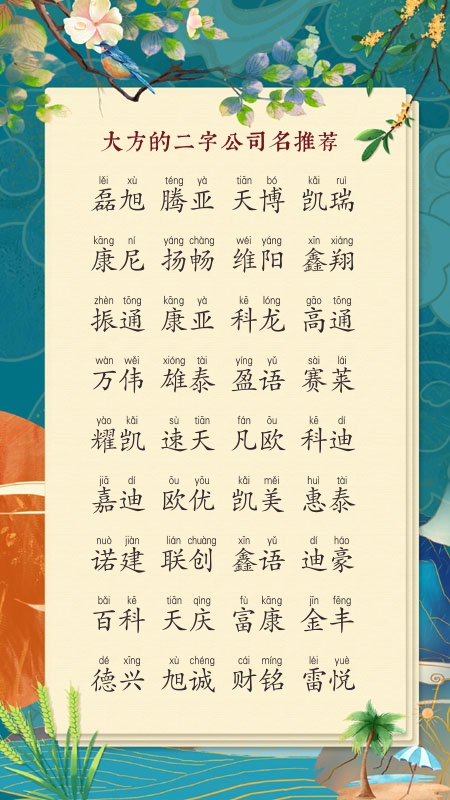 大方的二字公司名推荐
lěi xù téng yà tiān bó kǎi ruì
磊旭 腾亚 天博 凯瑞
kāng ní yáng chàng wéi yáng xīn xiáng
康尼 扬畅 维阳 鑫翔
zhèn tōng kāng yà kē lóng gāo tōng
振通 康亚 科龙 高通
wàn wěi xióng tài yíng yǔ sài lái
万伟 雄泰 盈语 赛莱
yào kǎi sù tiān fán ōu kē dí
耀凯 速天 凡欧 科迪
jiā dí ōu yōu kǎi měi huì tài
嘉迪 欧优 凯美 惠泰
nuò jiàn lián chuàng xīn yǔ dí háo
诺建 联创 鑫语 迪豪
bǎi kē tiān qìng fù kāng jīn fēng
百科 天庆 富康 金丰
dé xīng xù chéng cái míng léi yuè
德兴 旭诚 财铭 雷悦